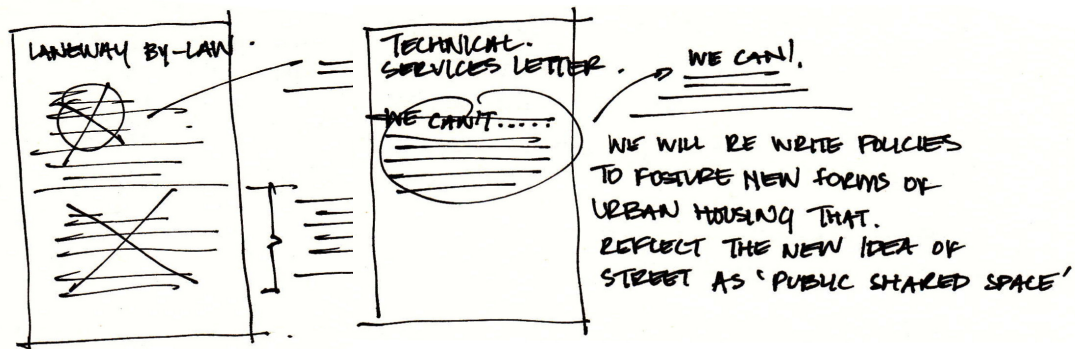 LANEWAY BY-LAW.
TECHNICAL.
SERVICES LETTER.
WE CAN'T.....
WE CAN!
WE WILL RE WRITE POLICIES
TO FOSTURE NEW FORMS OF
URBAN HOUSING THAT.
REFLECT THE NEW IDEA OF
STREET AS 'PUBLIC SHARED SPACE'